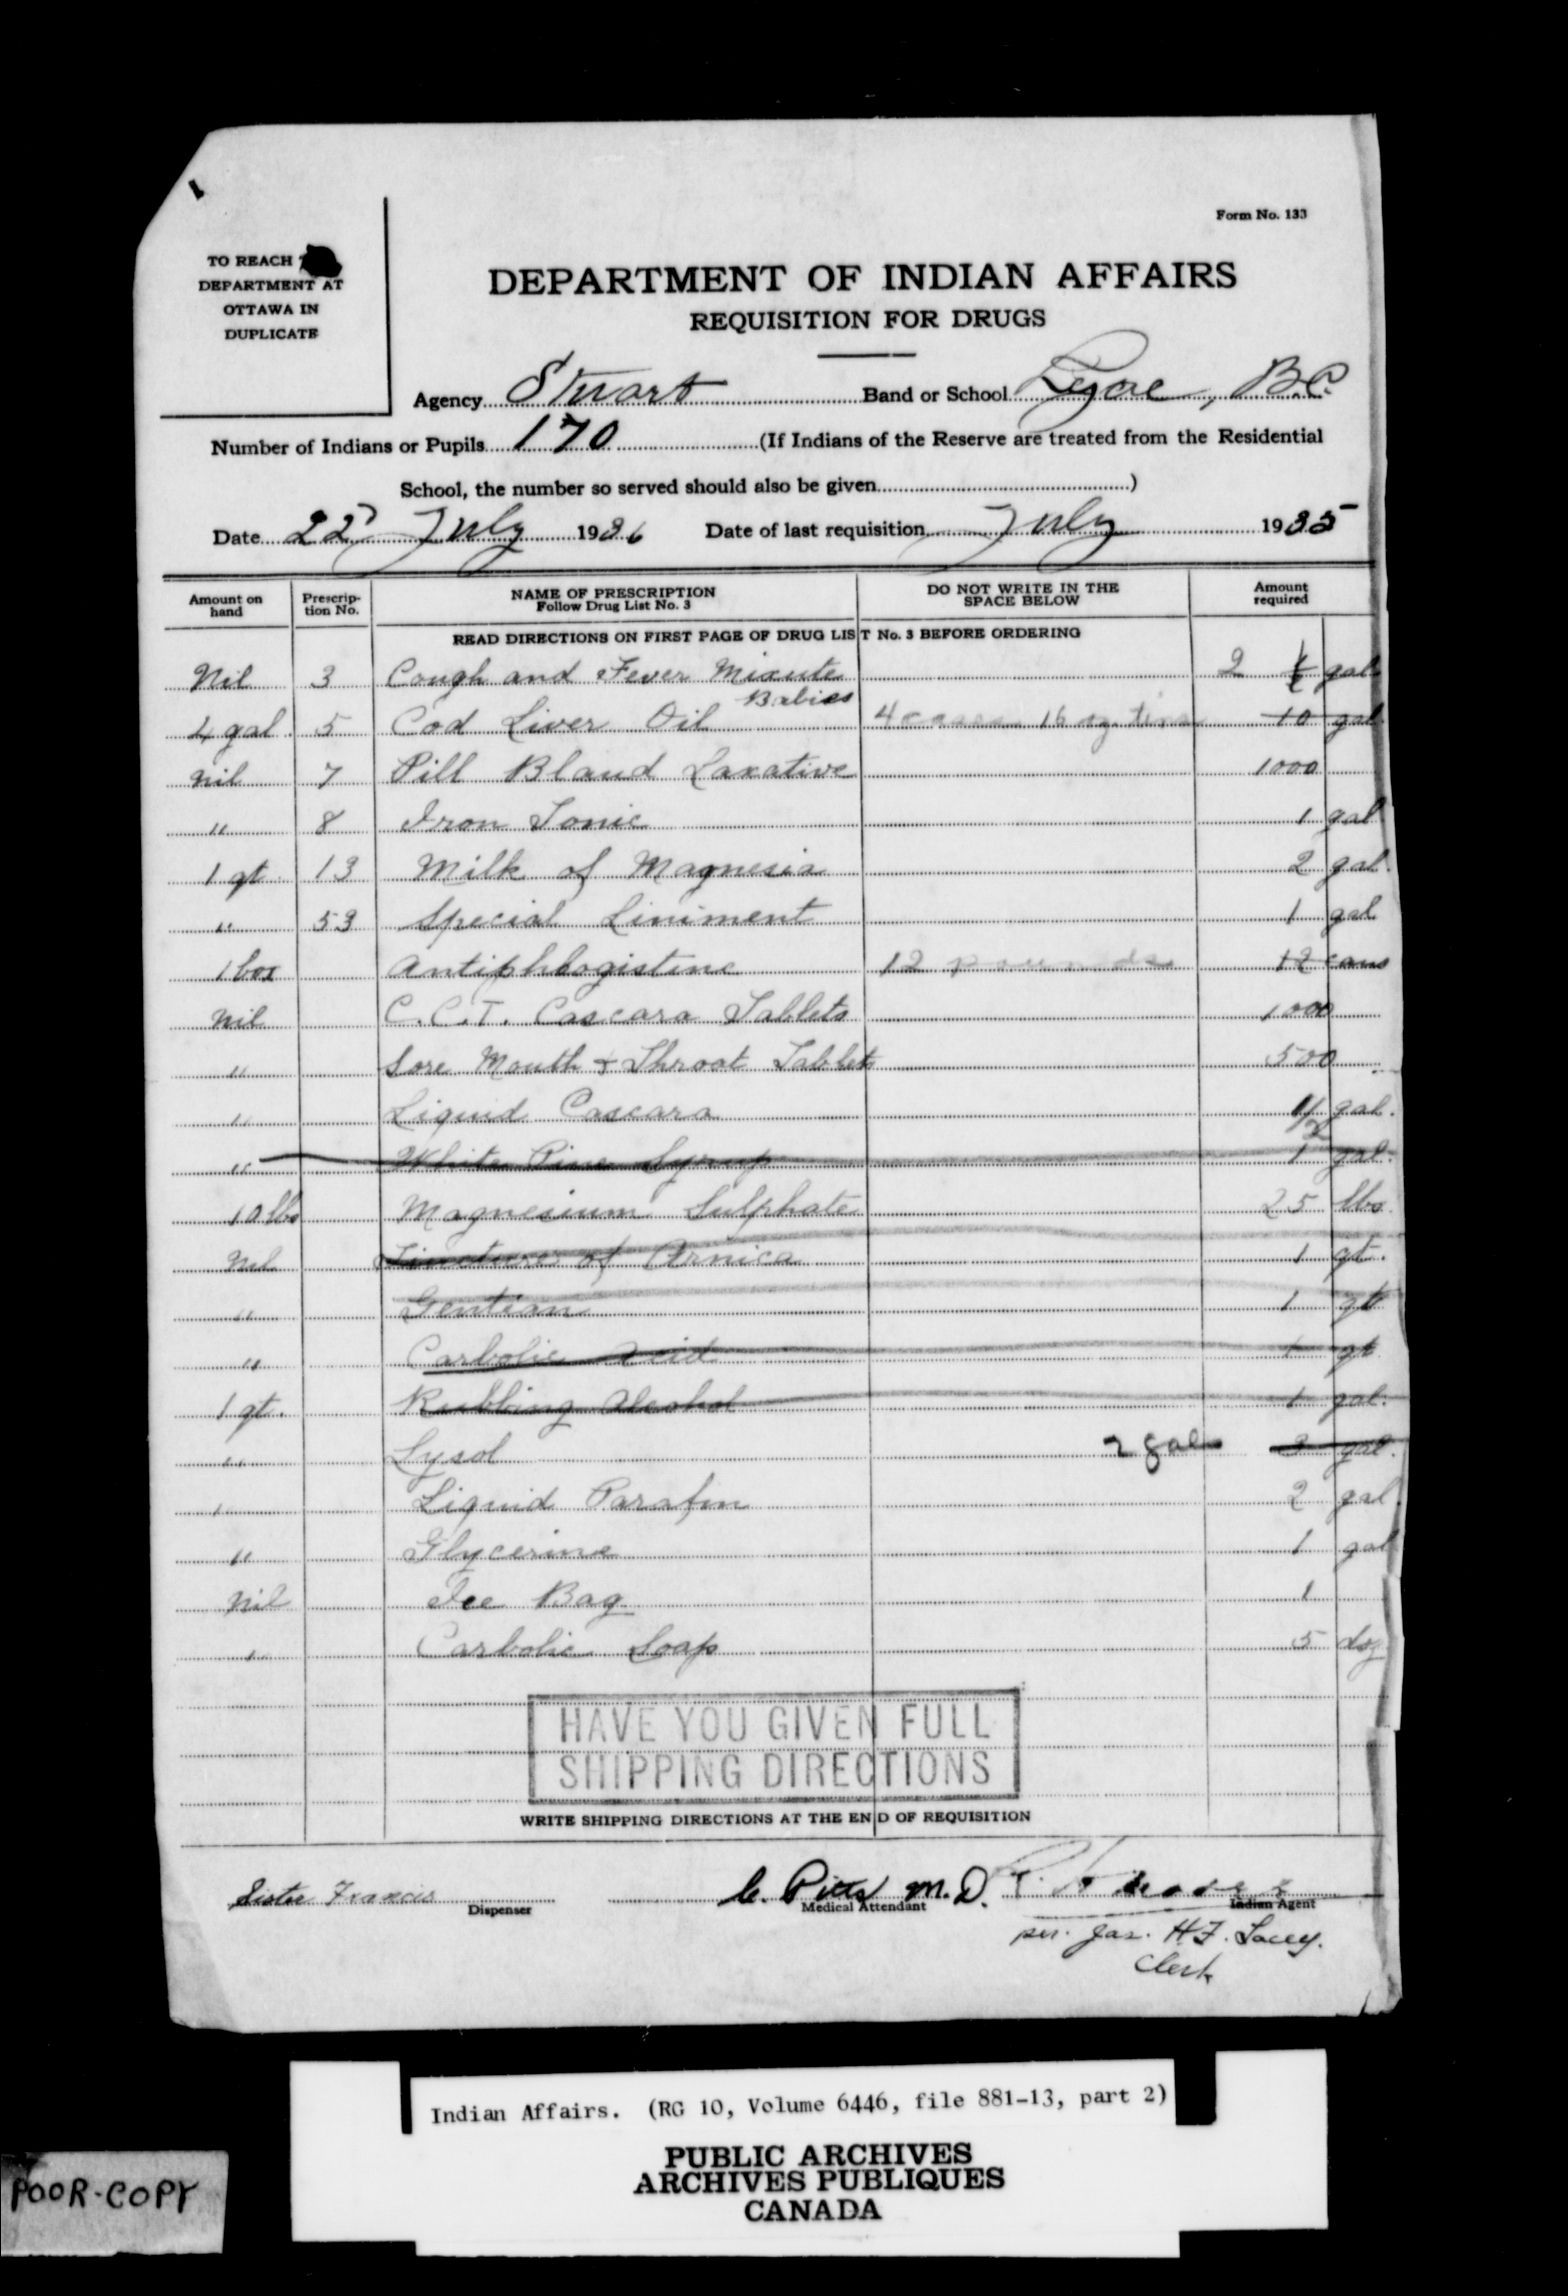 Form No. 133
TO REACH
DEPARTMENT AT
OTTAWA IN
DUPLICATE
DEPARTMENT OF INDIAN AFFAIRS
REQUISITION FOR DRUGS
Agency Stuart Band or School Lejac, B.C.
Number of Indians or Pupils 170 (If Indians of the Reserve are treated from the Residential
School, the number so served should also be given )
Date 22 July 1936 Date of last requisition July 1935
Amount on hand Prescription No. NAME OF PRESCRIPTION Follow Drug List No. 3 DO NOT WRITE IN THE SPACE BELOW Amount required
READ DIRECTIONS ON FIRST PAGE OF DRUG LIST No. 3 BEFORE ORDERING
Nil 3 Cough and Fever Mixute Babies 2 gal
4 gal. 5 Cod Liver Oil 4 cases 16 oz. tins 10 gal
Nil 7 Pill Bland Laxative 1000
" 8 Iron Tonic 1 gal
1 qt. 13 Milk of Magnesia 2 gal.
" 53 Special Liniment 1 gal
1 box Antiphlogistine 12 pounds 12 cans
Nil C.C.T. Cascara Tablets 1000
" Sore Mouth & Throat Tablets 500
" Liquid Cascara 1/2 gal.
" White Pine Syrup 1 gal.
10 lbs Magnesium Sulphate 25 lbs.
Nil Tincture of Arnica 1 qt.
" Gentian 1 qt
" Carbolic Acid 1 qt
1 qt. Rubbing Alcohol 1 gal.
" Lysol 2 gals 3 gal.
" Liquid Parafin 2 gal.
" Glycerine 1 gal
Nil Ice Bag 1
" Carbolic Soap 5 doz
HAVE YOU GIVEN FULL
SHIPPING DIRECTIONS
WRITE SHIPPING DIRECTIONS AT THE END OF REQUISITION
Sister Francis C. Pitts M.D.
Dispenser Medical Attendant Indian Agent
per. Jas. H.F. Lacey.
Clerk
Indian Affairs. (RG 10, Volume 6446, file 881-13, part 2)
PUBLIC ARCHIVES
ARCHIVES PUBLIQUES
CANADA
POOR-COPY